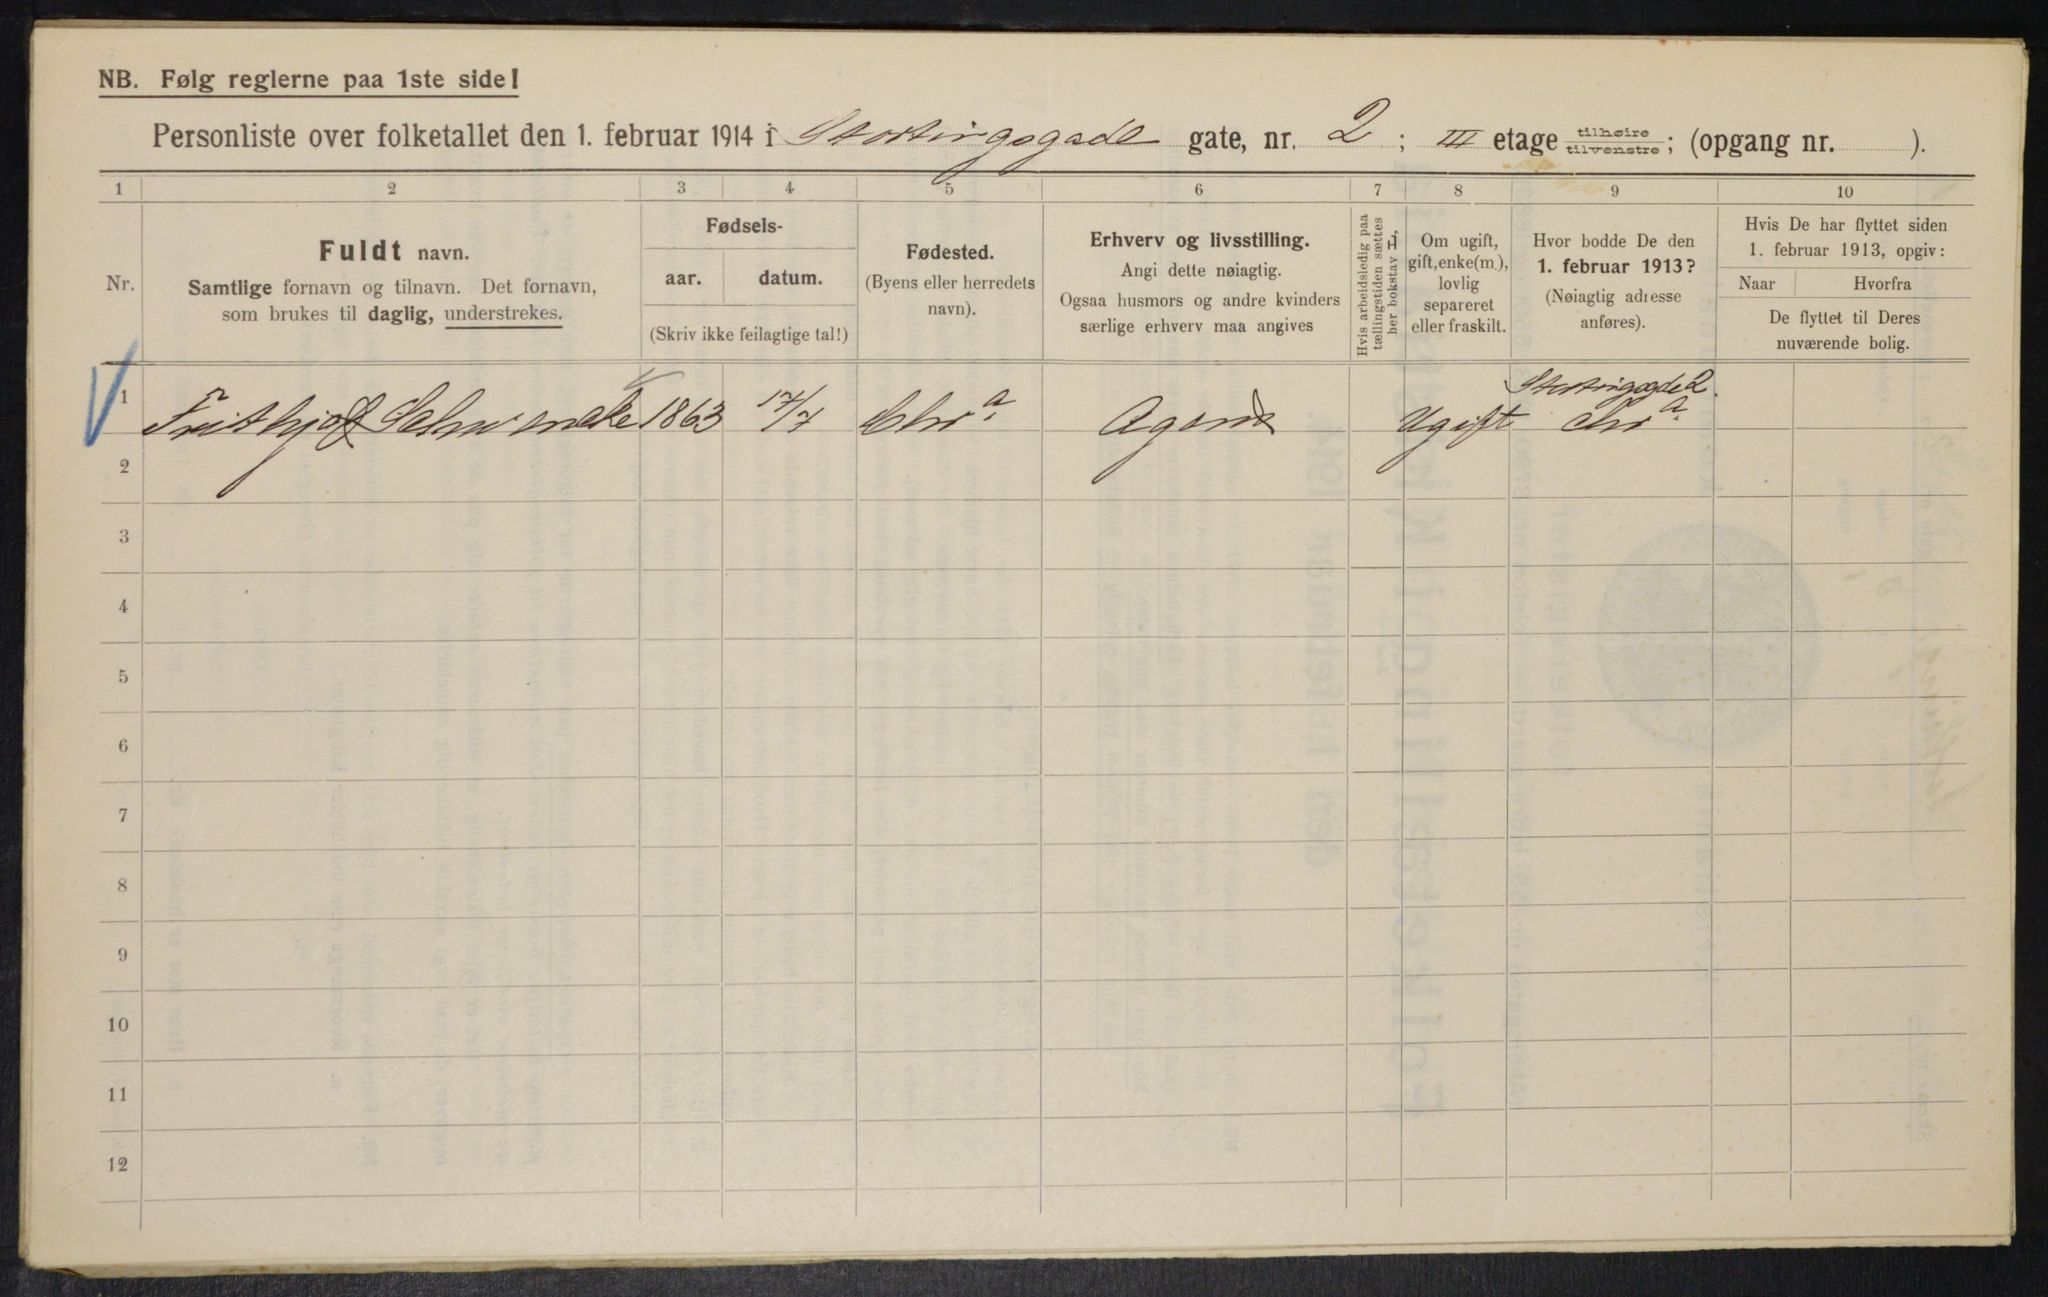 NB. Følg reglerne paa 1ste side!
Personliste over folketallet den 1. februar 1914 i Stortingsgade gate, nr. 2 ; III etage tilhøire tilvenstre ; (opgang nr. ).
1 2 3 4 5 6 7 8 9 10
Nr.
Fuldt navn.
Samtlige fornavn og tilnavn. Det fornavn,
som brukes til daglig, understrekes.
Fødsels-
aar. datum.
(Skriv ikke feilagtige tal!)
Fødested.
(Byens eller herredets
navn).
Erhverv og livsstilling.
Angi dette nøiagtig.
Ogsaa husmors og andre kvinders
særlige erhverv maa angives
Hvis arbeidsledig paa
tællingstiden sættes
her bokstav L.
Om ugift,
gift, enke(m.),
lovlig
separeret
eller fraskilt.
Hvor bodde De den
1. februar 1913?
(Nøiagtig adresse
anføres).
Hvis De har flyttet siden
1. februar 1913, opgiv:
Naar Hvorfra
De flyttet til Deres
nuværende bolig.
Stortingsgade 2.
1 Frithjof 1863 17/7 Chra. Agent Ugift Chra.
2
3
4
5
6
7
8
9
10
11
12